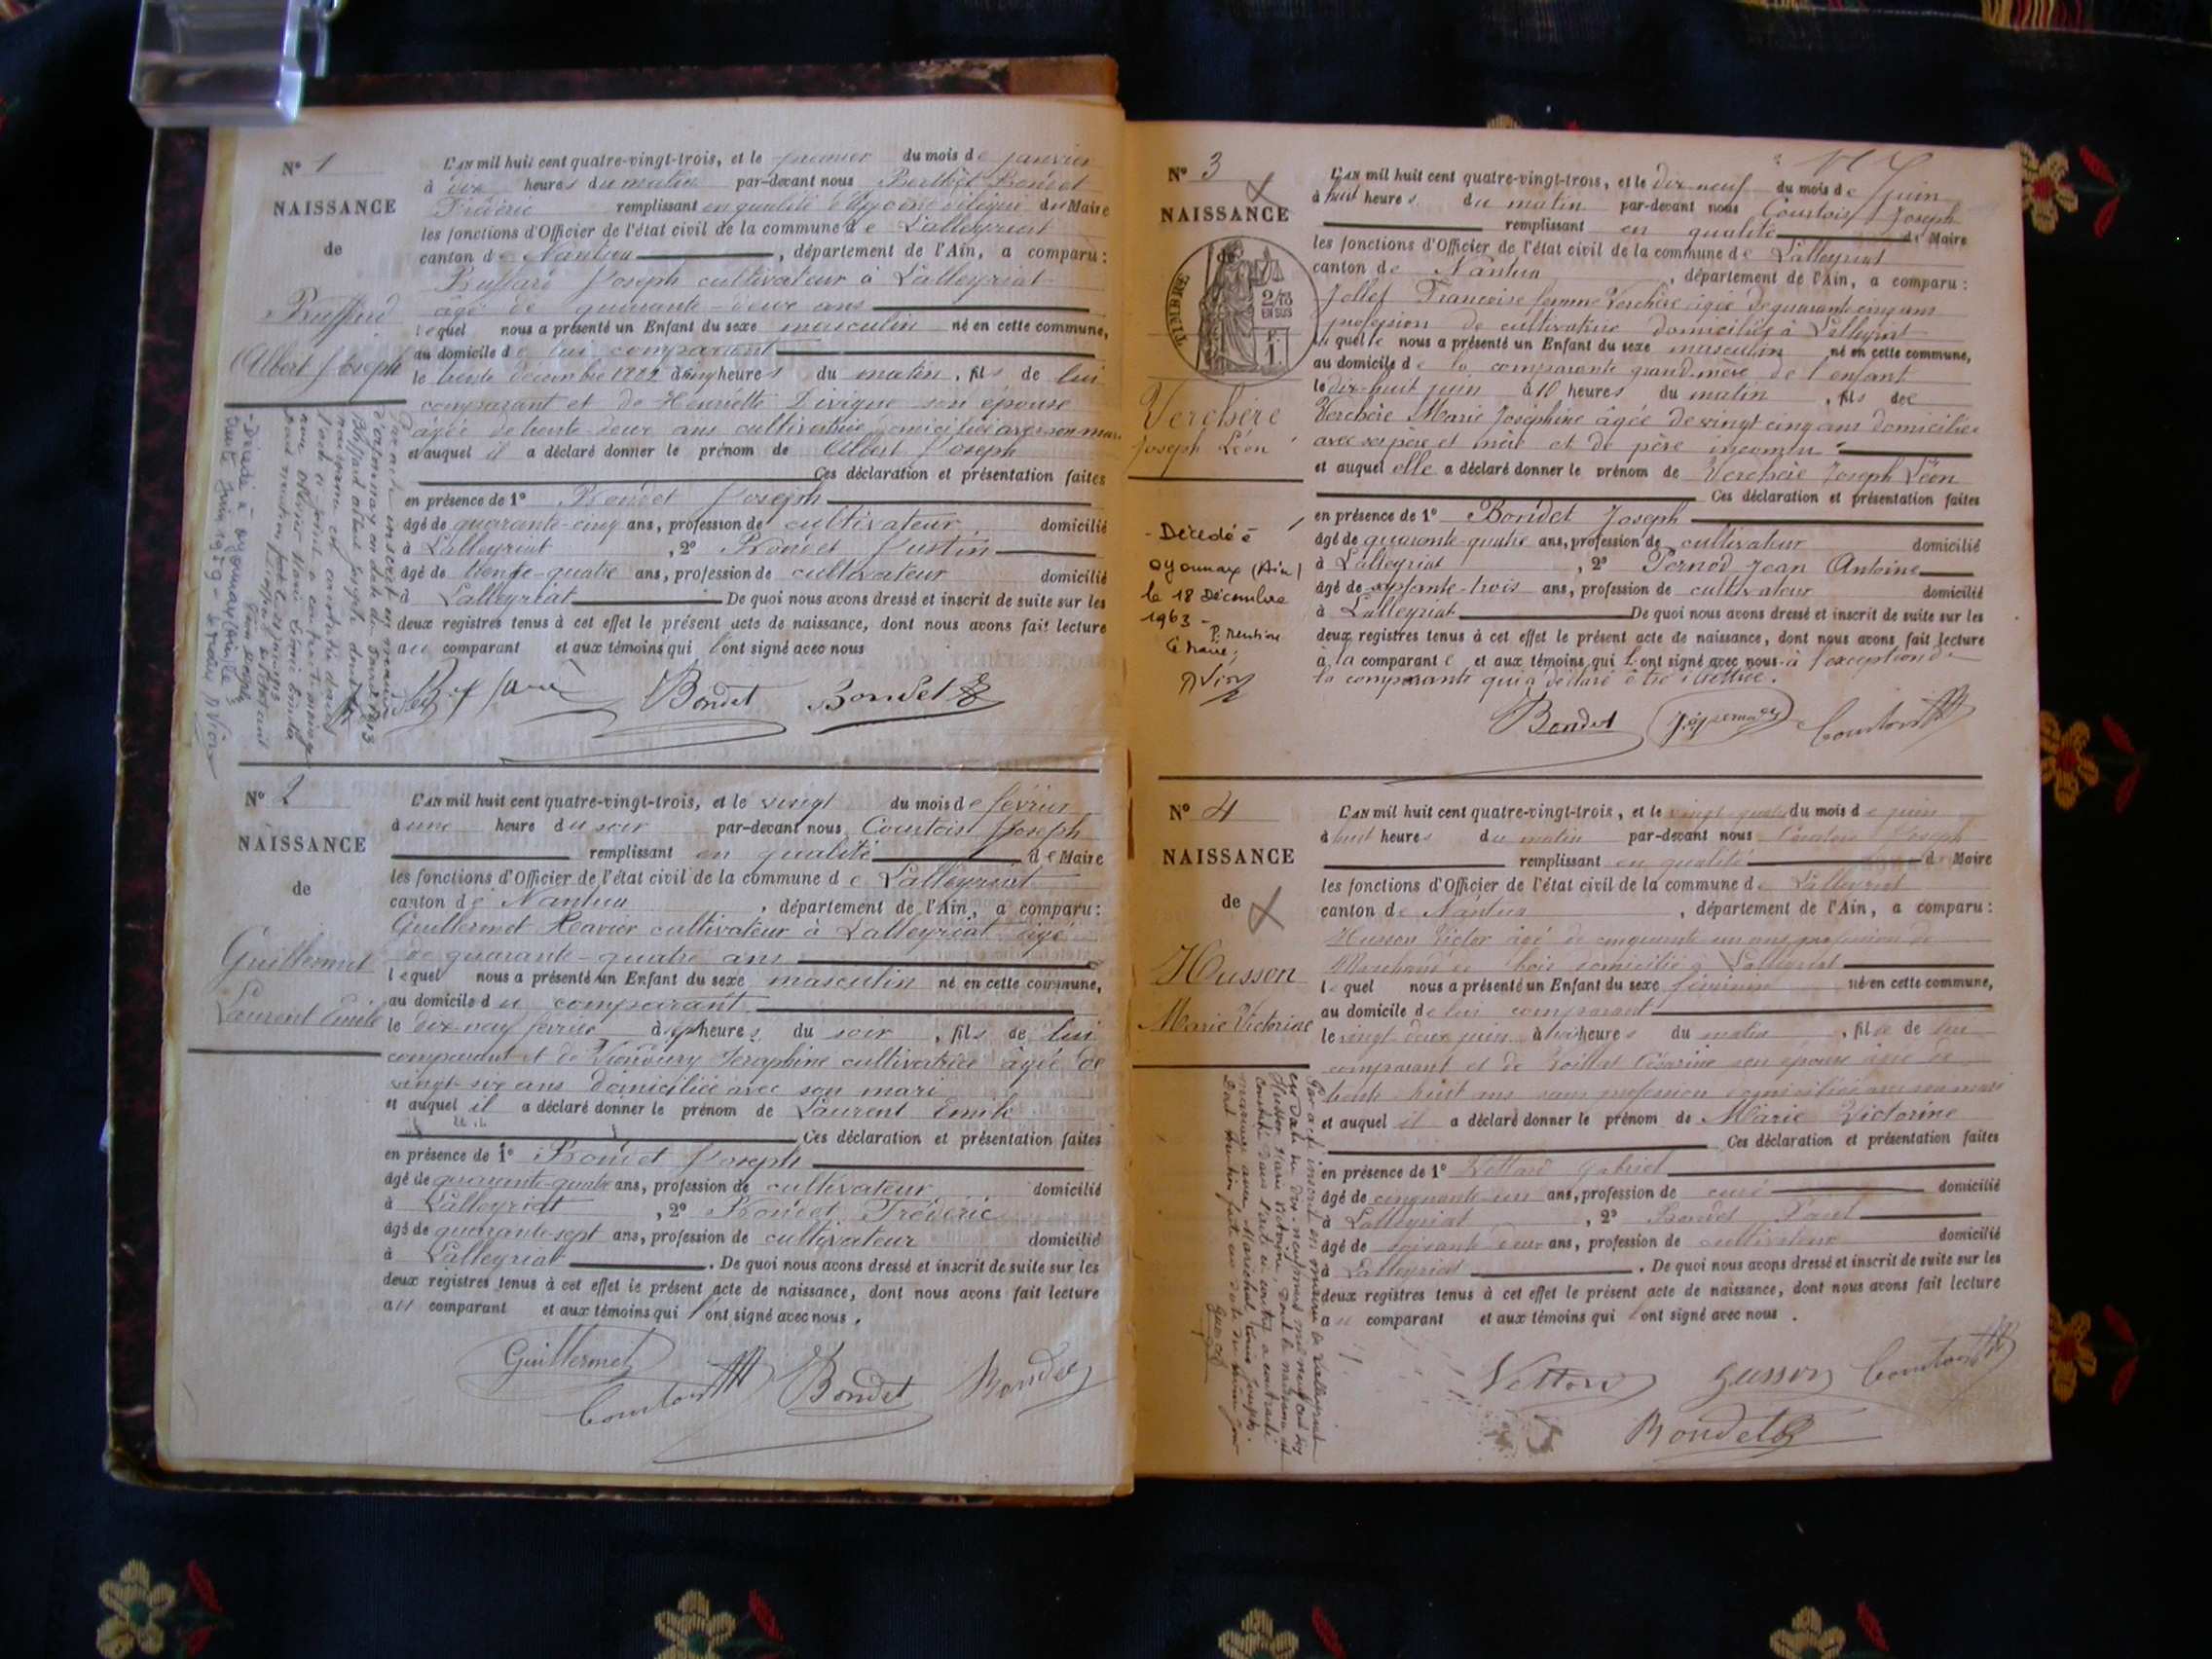 N° 1
NAISSANCE
de
Albert Joseph
L'AN mil huit cent quatre-vingt-trois, et le premier du mois de janvier
à dix heures du matin par-devant nous Bondet
Frédéric remplissant en qualité d' délégué du Maire
les fonctions d'Officier de l'état civil de la commune de Lalleyriat
canton de Nantua, département de l'Ain, a comparu :
Joseph cultivateur à Lalleyriat
âgé de quarante-deux ans
lequel nous a présenté un Enfant du sexe masculin né en cette commune,
au domicile de lui comparant
le trente décembre 1882 à cinq heures du matin, fils de lui
comparant et de Henriette son épouse
agée de trente-deux ans cultivatrice domiciliée avec son mari
et auquel il a déclaré donner le prénom de Albert Joseph
Ces déclaration et présentation faites
en présence de 1° Bondet Joseph
âgé de quarante-cinq ans, profession de cultivateur domicilié
à Lalleyriat, 2° Bondet Justin
âgé de trente-quatre ans, profession de cultivateur domicilié
à Lalleyriat De quoi nous avons dressé et inscrit de suite sur les
deux registres tenus à cet effet le présent acte de naissance, dont nous avons fait lecture
au comparant et aux témoins qui l'ont signé avec nous
Bondet Bondet
- Décédé à Oyonnax (Ain) le
trente juin 1959 -
N° 2
NAISSANCE
de
Guillermet
Laurent Emile
L'AN mil huit cent quatre-vingt-trois, et le vingt du mois de février
à une heure du soir par-devant nous Courtois Joseph
remplissant en qualité de Maire
les fonctions d'Officier de l'état civil de la commune de Lalleyriat
canton de Nantua, département de l'Ain, a comparu :
Guillermet Xavier cultivateur à Lalleyriat âgé
de quarante-quatre ans
lequel nous a présenté un Enfant du sexe masculin né en cette commune,
au domicile du comparant
le dix-neuf février à sept heures du soir, fils de lui
comparant et de Séraphine cultivatrice âgée de
vingt-six ans domiciliée avec son mari
et auquel il a déclaré donner le prénom de Laurent Emile
Ces déclaration et présentation faites
en présence de 1° Bondet Joseph
âgé de quarante-quatre ans, profession de cultivateur domicilié
à Lalleyriat, 2° Bondet Frédéric
âgé de quarante-sept ans, profession de cultivateur domicilié
à Lalleyriat. De quoi nous avons dressé et inscrit de suite sur les
deux registres tenus à cet effet le présent acte de naissance, dont nous avons fait lecture
au comparant et aux témoins qui l'ont signé avec nous.
Guillermet
Courtois Bondet Bondet
N° 3
NAISSANCE
TIMBRE
2/10
EN SUS
Verchère
Joseph Léon
- Décédé à
Oyonnax (Ain)
le 18 Décembre
1963 -
P. mention
Le Maire,
L'AN mil huit cent quatre-vingt-trois, et le dix-neuf du mois de Juin
à huit heures du matin par-devant nous Courtois Joseph
remplissant en qualité de Maire
les fonctions d'Officier de l'état civil de la commune de Lalleyriat
canton de Nantua, département de l'Ain, a comparu :
Jollet Françoise femme Verchère âgée de quarante cinq ans
profession de cultivatrice domiciliée à Lalleyriat
laquelle nous a présenté un Enfant du sexe masculin né en cette commune,
au domicile de la comparante grand-mère de l'enfant
le dix-huit juin à 10 heures du matin, fils de
Verchère Marie Joséphine âgée de vingt cinq ans domiciliée
avec ses père et mère et de père inconnu
et auquel elle a déclaré donner le prénom de Verchère Joseph Léon
Ces déclaration et présentation faites
en présence de 1° Bondet Joseph
âgé de quarante-quatre ans, profession de cultivateur domicilié
à Lalleyriat, 2° Pernod Jean Antoine
âgé de septante-trois ans, profession de cultivateur domicilié
à Lalleyriat De quoi nous avons dressé et inscrit de suite sur les
deux registres tenus à cet effet le présent acte de naissance, dont nous avons fait lecture
à la comparante et aux témoins qui l'ont signé avec nous à l'exception de
la comparante qui a déclaré être illettrée.
Bondet Courtois
N° 4
NAISSANCE
de
Husson
Marie Victorine
L'AN mil huit cent quatre-vingt-trois, et le vingt-quatre du mois de juin
à huit heures du matin par-devant nous Courtois Joseph
remplissant en qualité de Maire
les fonctions d'Officier de l'état civil de la commune de Lalleyriat
canton de Nantua, département de l'Ain, a comparu :
Husson Victor âgé de cinquante-un ans profession de
Marchand de bois domicilié à Lalleyriat
lequel nous a présenté un Enfant du sexe féminin né en cette commune,
au domicile de lui comparant
le vingt-deux juin à trois heures du matin, fille de lui
comparant et de Césarine son épouse âgée de
trente-huit ans sans profession domiciliée avec son mari
et auquel il a déclaré donner le prénom de Marie Victorine
Ces déclaration et présentation faites
en présence de 1° Vettard Gabriel
âgé de cinquante-un ans, profession de curé domicilié
à Lalleyriat, 2° Bondet
âgé de soixante-deux ans, profession de cultivateur domicilié
à Lalleyriat. De quoi nous avons dressé et inscrit de suite sur les
deux registres tenus à cet effet le présent acte de naissance, dont nous avons fait lecture
au comparant et aux témoins qui l'ont signé avec nous.
Husson Courtois
Bondet